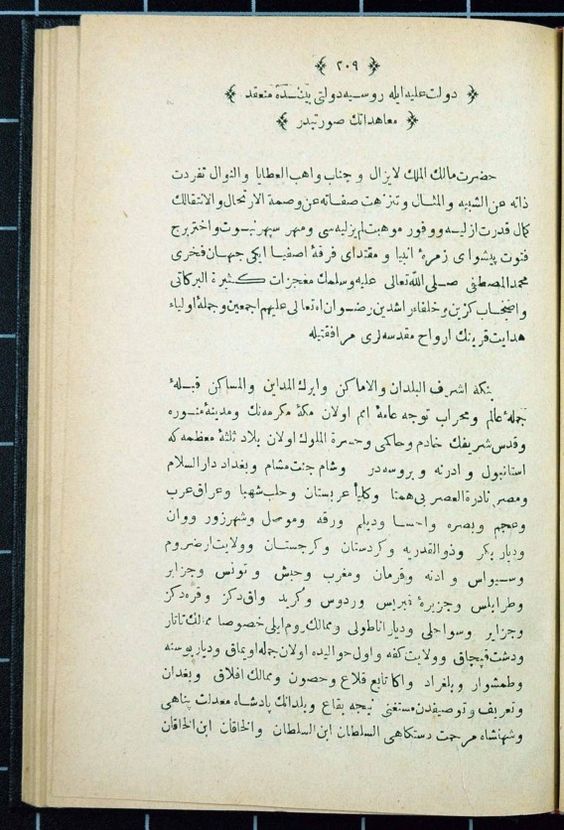 ﴿ ٢٠٩ ﴾
﴿ دولت علیه ایله روسیه دولتی بیننده منعقد ﴾
﴿ معاهداتك صورتیدر ﴾
حضرت مالك الملك لایزال و جناب واهب العطایا والنوال تفردت
ذاته عن الشبیه والمثال و تنزهت صفاته عن وصمة الارتحال والانتقالك
كمال قدرت ازلیه و وفور موهبت لم یزلیه سی ومهر سپهر نبوت واختر برج
فتوت پیشوای زمرهٔ انبیا و مقتدای فرقهٔ اصفیا ایكی جهان فخری
محمد المصطفی صلی الله تعالی علیه وسلمك معجزات كثیرة البركاتی
واصحاب كزین برخلفاء راشدین رضوان الله تعالی علیهم اجمعین وجملهٔ اولیاء
هدایت قرینك ارواح مقدسه لری مرافقتیله
بنكه اشرف البلدان والاماكن وابرك المداین والمساكن قبلهٔ
جملهٔ عالم ومحراب توجه عامهٔ امم اولان مكهٔ مكرمه نك ومدینهٔ منوره
وقدس شریفك خادم وحاكمی وحسرة الملوك اولان بلاد ثلثهٔ معظمه كه
استانبول و ادرنه و بروسه در وشام جنت مشام و بغداد دار السلام
ومصر نادرة العصر بی همتا وكلیاً عربستان وحلب شهبا وعراق عرب
وعجم وبصره واحسا ودیلم ورقه وموصل وشهرزور ووان
ودیار بكر وذوالقدریه وكردستان وكرجستان وولایت ارضروم
وسیواس و ادنه وقرمان ومغرب وحبش وتونس وجزایر
وطرابلس وجزیرهٔ قبریس وردوس وكرید واق دكز وقره دكز
وجزایر وسواحلی ودیار اناطولی وممالك روم ایلی خصوصا ممالك تاتار
ودشت قپچاق وولایت كفه واول حوالیده اولان جمله اویماق ودیار بوسنه
وطمشوار وبلغراد واكا تابع قلاع وحصون وممالك افلاق وبغدان
وتعریف وتوصیفدن مستغنی نیجه بقاع وبلدانك پادشاه معدلت پناهی
وشهنشاه مرحمت دستكاهی السلطان ابن السلطان والخاقان ابن الخاقان